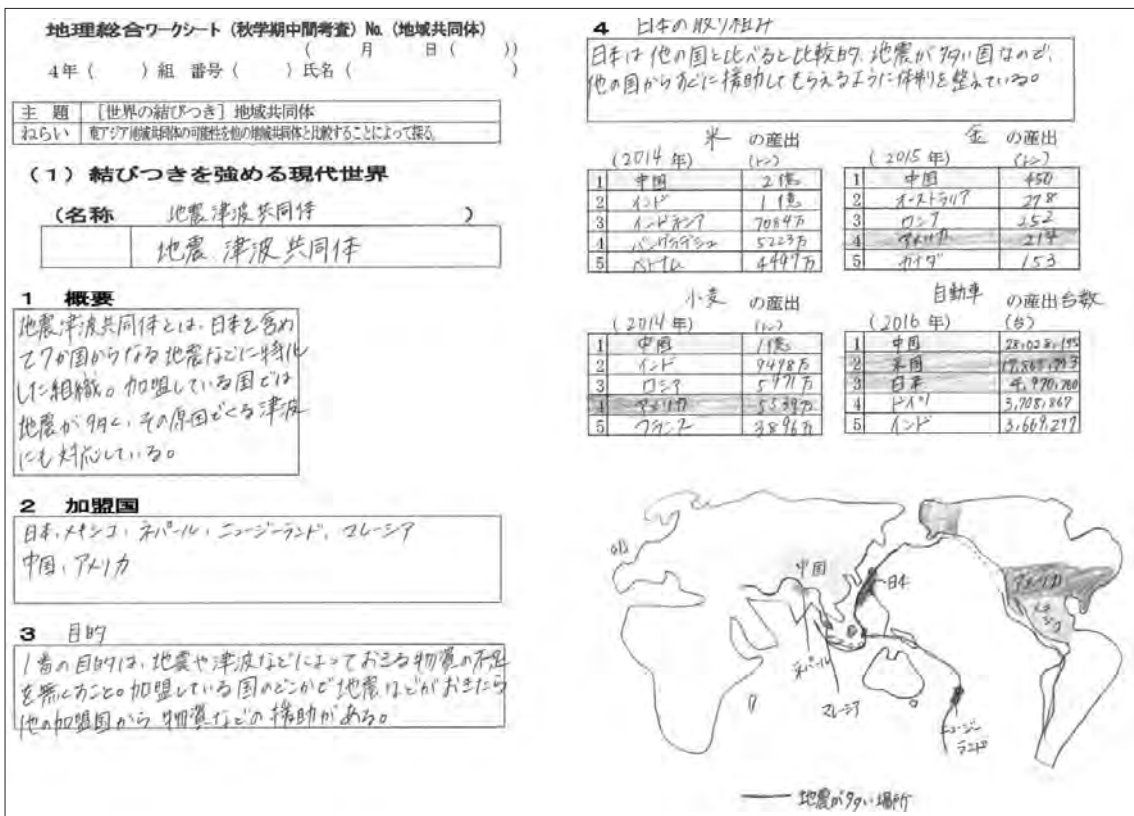 地理総合ワークシート（秋学期中間考査）No.（地域共同体）
（　　月　　日（　　））
4年（　　）組　番号（　　）氏名（　　　　）
主　題　［世界の結びつき］地域共同体
ねらい　東アジア地域共同体の可能性を他の地域共同体と比較することによって探る。
（1）結びつきを強める現代世界
（名称　地震津波共同体　）
地震津波共同体
1　概要
地震津波共同体とは、日本を含め
て7か国からなる地震などに特化
した組織。加盟している国では
地震が多く、その原因でくる津波
にも対応している。
2　加盟国
日本、メキシコ、ネパール、ニュージーランド、マレーシア
中国、アメリカ
3　目的
1番の目的は、地震や津波などによっておきる物資の不足
を無くすこと。加盟している国のどこかで地震などがおきたら
他の加盟国から物資などの援助がある。
4　日本の取り組み
日本は他の国と比べると比較的、地震が多い国なので、
他の国からすぐに援助してもらえるように体制を整えている。
米　の産出
（2014年）（トン）
1　中国　2億
2　インド　1億
3　インドネシア　7084万
4　バングラデシュ　5223万
5　ベトナム　4497万
金　の産出
（2015年）（トン）
1　中国　450
2　オーストラリア　278
3　ロシア　252
4　アメリカ　214
5　カナダ　153
小麦　の産出
（2014年）（トン）
1　中国　1億
2　インド　9498万
3　ロシア　5971万
4　アメリカ　5539万
5　フランス　3896万
自動車　の産出台数
（2016年）（台）
1　中国
2　米国
3　日本
4　ドイツ　3,708,867
5　インド　3,669,277
中国
日本
アメリカ
メキシコ
ネパール
マレーシア
ニュージーランド
地震が多い場所